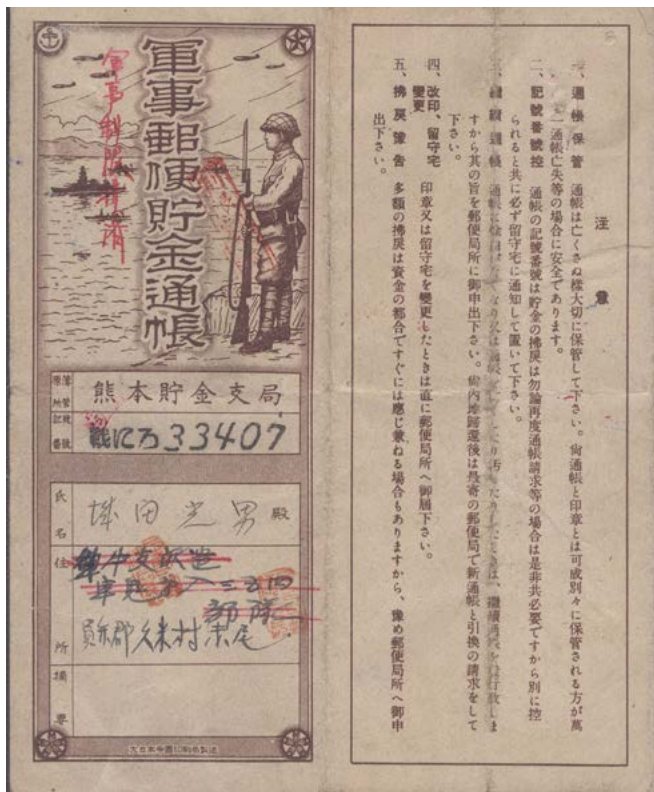 軍事郵便貯金通帳
熊本貯金支局
33407
氏名
田光男殿
住所
摘要
注意
一、通帳保管 通帳は亡くさぬ樣大切に保管して下さい。尙通帳と印章とは可成別々に保管される方が萬
一通帳亡失等の場合に安全であります。
二、記號番號控 通帳の記號番號は貯金の拂戾は勿論再度通帳請求等の場合は是非共必要ですから別に控
られると共に必ず留守宅に通知して置いて下さい。
すから其の旨を郵便局所に御申出下さい。尙內地歸還後は最寄の郵便局で新通帳と引換の請求をして
下さい。
四、改印、留守宅變更 印章又は留守宅を變更したときは直に郵便局所へ御屆下さい。
五、拂戾豫告 多額の拂戾は資金の都合ですぐには應じ兼ねる場合もありますから、豫め郵便局所へ御申
出下さい。